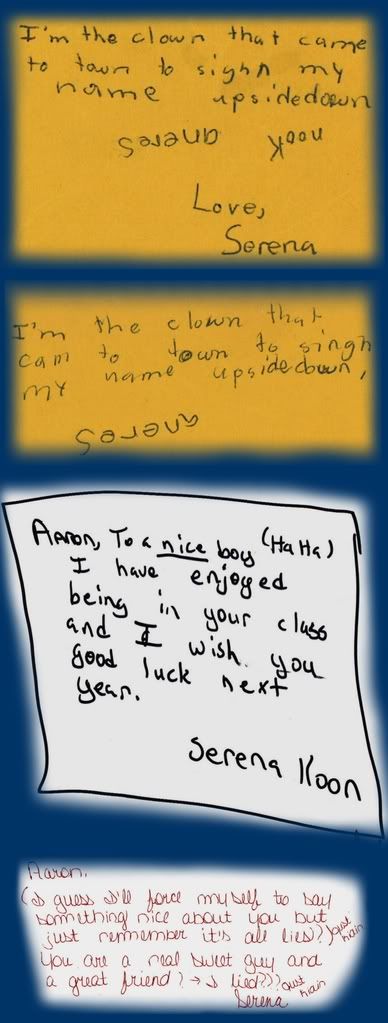 I'm the clown that came
to town to sighn my
name upsidedown
Serena Kooy
Love,
Serena
I'm the clown that
cam to town to singh
my name upsidedown,
Serena
Aaron, To a nice boy (Ha Ha)
I have enjoyed
being in your class
and I wish you
good luck next
year.
Serena Koon
Aaron,
(I guess I'll force myself to say
something nice about you but
just remember it's all lies)? Just
You are a real sweet guy and
a great friend? → I lied??? Just
Serena